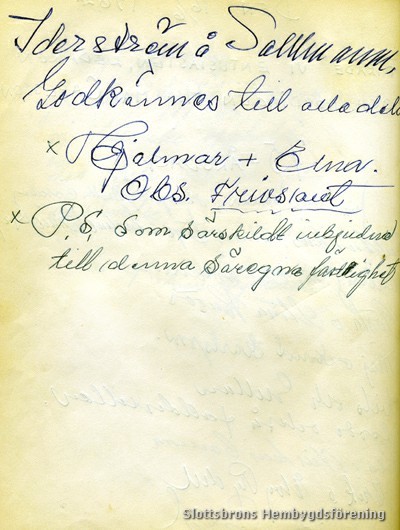 Iderström å Sallmann,
Godkännes till alla dela
x Hjalmar + Elna.
Obs. Frivsiait
x P.S. Som särskildt inbjudna
till denna säregna färtlighet
Slottsbrons Hembygdsförening